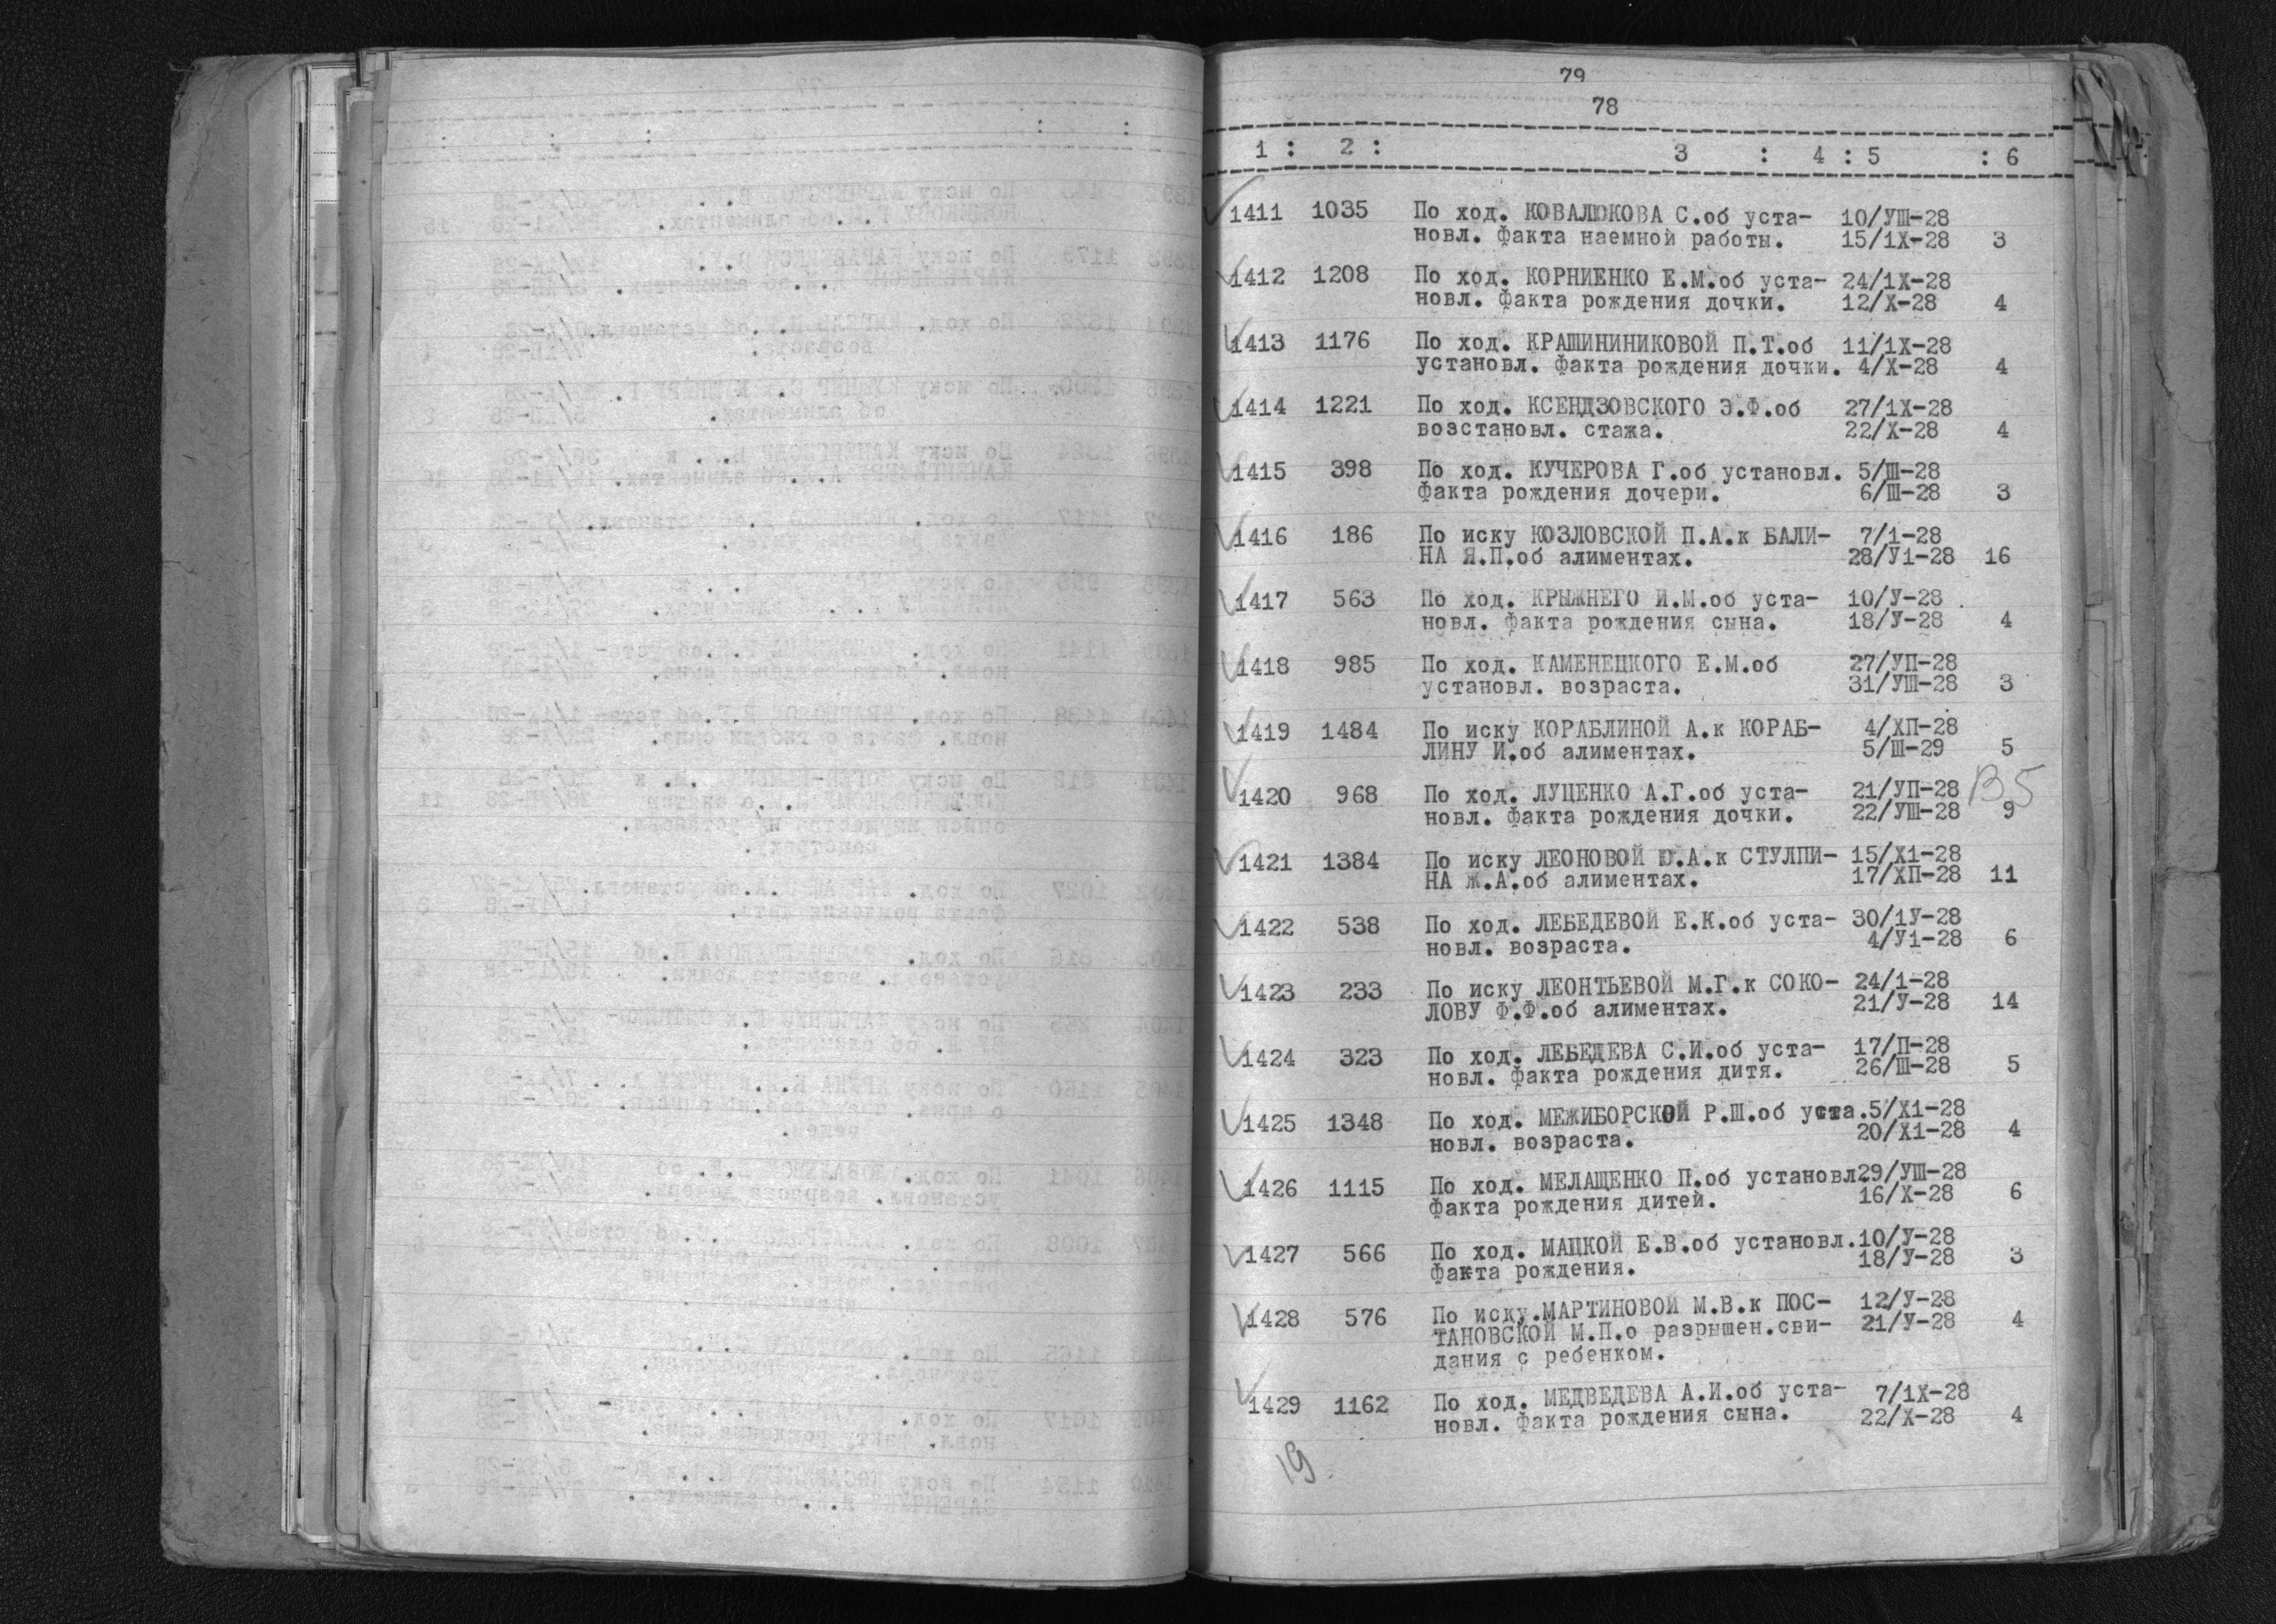 79
78
1 : 2 : 3 : 4 : 5 : 6
1411 1035 По ход. КОВАЛЮКОВА С.об уста- 10/УШ-28
новл. факта наемной работы. 15/1Х-28 3
1412 1208 По ход. КОРНИЕНКО Е.М.об уста- 24/1Х-28
новл. факта рождения дочки. 12/Х-28 4
1413 1176 По ход. КРАШИНИНИКОВОЙ П.Т.об 11/1Х-28
установл. факта рождения дочки. 4/Х-28 4
1414 1221 По ход. КСЕНДЗОВСКОГО Э.Ф.об 27/1Х-28
возстановл. стажа. 22/Х-28 4
1415 398 По ход. КУЧЕРОВА Г.об установл. 5/Ш-28
факта рождения дочери. 6/Ш-28 3
1416 186 По иску КОЗЛОВСКОЙ П.А.к БАЛИ- 7/1-28
НА Я.П.об алиментах. 28/У1-28 16
1417 563 По ход. КРЫЖНЕГО И.М.об уста- 10/У-28
новл. факта рождения сына. 18/У-28 4
1418 985 По ход. КАМЕНЕЦКОГО Е.М.об 27/УП-28
установл. возраста. 31/УШ-28 3
1419 1484 По иску КОРАБЛИНОЙ А.к КОРАБ- 4/ХП-28
ЛИНУ И.об алиментах. 5/Ш-29 5
1420 968 По ход. ЛУЦЕНКО А.Г.об уста- 21/УП-28
новл. факта рождения дочки. 22/УШ-28 9
1421 1384 По иску ЛЕОНОВОЙ Ю.А.к СТУЛПИ- 15/Х1-28
НА Ж.А.об алиментах. 17/ХП-28 11
1422 538 По ход. ЛЕБЕДЕВОЙ Е.К.об уста- 30/1У-28
новл. возраста. 4/У1-28 6
1423 233 По иску ЛЕОНТЬЕВОЙ М.Г.к СОКО- 24/1-28
ЛОВУ Ф.Ф.об алиментах. 21/У-28 14
1424 323 По ход. ЛЕБЕДЕВА С.И.об уста- 17/П-28
новл. факта рождения дитя. 26/Ш-28 5
1425 1348 По ход. МЕЖИБОРСКОЙ Р.Ш.об уста.5/Х1-28
новл. возраста. 20/Х1-28 4
1426 1115 По ход. МЕЛАЩЕНКО П.об установл29/УШ-28
факта рождения дитей. 16/Х-28 6
1427 566 По ход. МАЦКОЙ Е.В.об установл.10/У-28
факта рождения. 18/У-28 3
1428 576 По иску.МАРТИНОВОЙ М.В.к ПОС- 12/У-28
ТАНОВСКОЙ М.П.о разрышен.сви- 21/У-28 4
дания с ребенком.
1429 1162 По ход. МЕДВЕДЕВА А.И.об уста- 7/1Х-28
новл. факта рождения сына. 22/Х-28 4
19